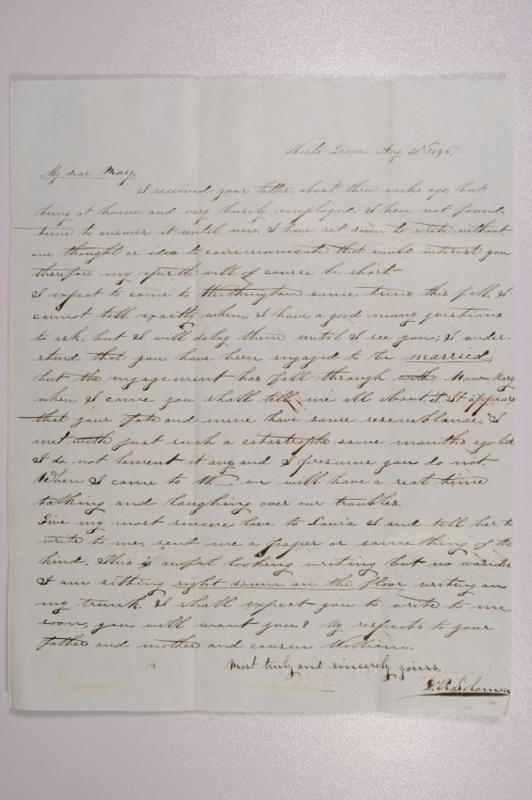 North Grove Aug 21st 1846,
My dear Mary,
I received your letter about three weeks ago, but
being at home and very busily employed, I have not found
time to answer it until now. I have set down to write without
one thought or idea to communicate that would interest you
therefore my epistle will of course be short.
I expect to come to Worthington some time this fall, I
cannot tell exactly when, I have a good many questions
to ask, but I will delay them until I see you; I under-
stand that you have been engaged to be married,
but the engagement has fell through with; Now Mary
when I come you shall tell me all about it. It appears
that your fate and mine, have some resemblance, I
met with just such a catastrophe some months ago but
I do not lament it any and I presume you do not.
When I come to W we will have a real time
talking and laughing over our troubles.
Give my most sincere love to Laura S. and tell her to
write to me, send me a paper or something of the
kind; This is awful looking writing but no wonder
I am sitting right down on the floor writing on
my trunk. I shall expect you to write to me
soon, you will want you? My respects to your
father and mother and cousin William.
Most truly and sincerely yours,